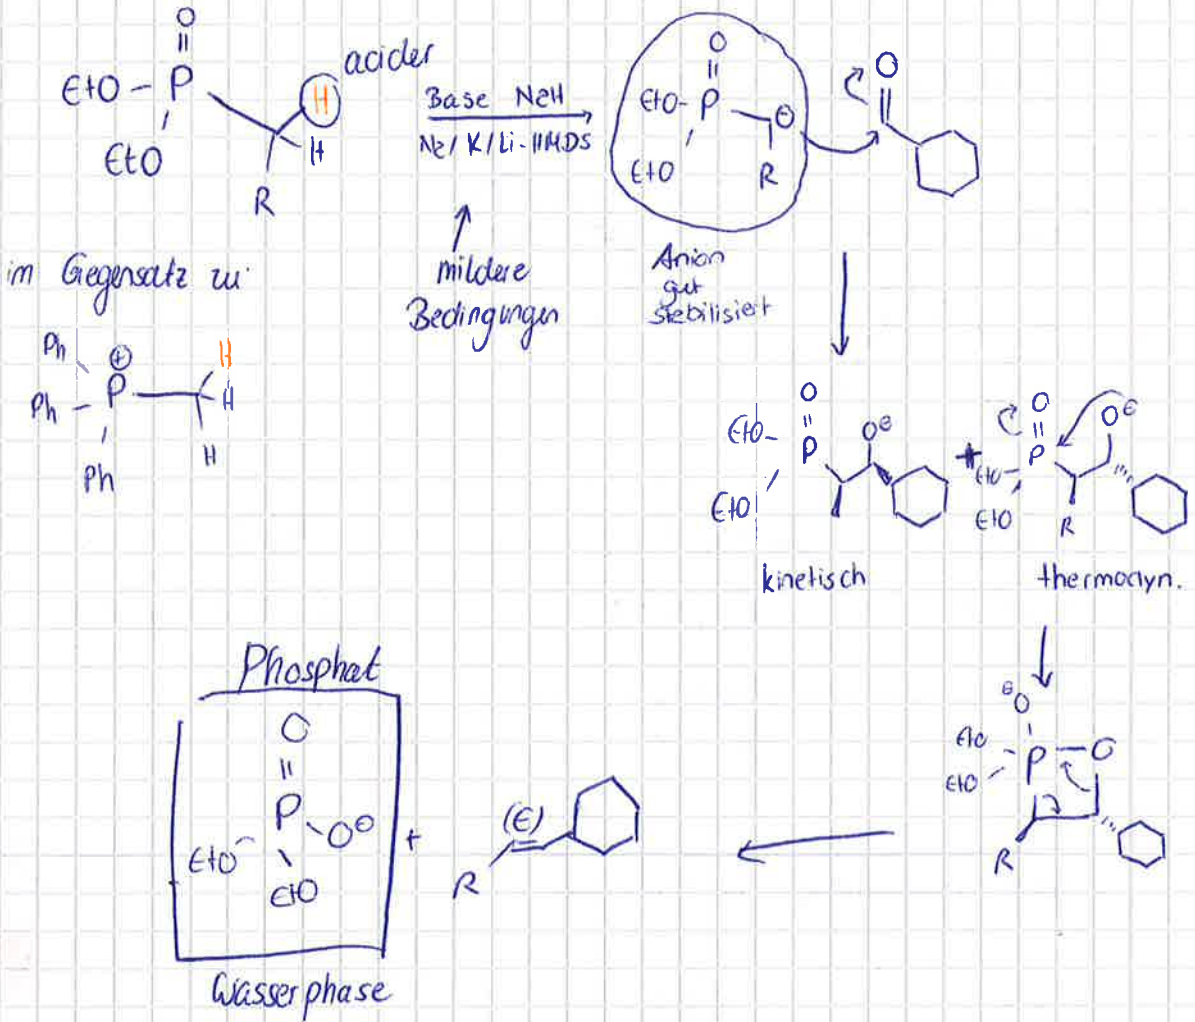 O
EtO
P
H
acider
EtO
H
R
Base NaH
Na/K/Li-HMDS
O
EtO-
P
⊖
EtO
R
O
mildere
Bedingungen
Anion
gut
stabilisiert
im Gegensatz zu
Ph
⊕
H
Ph
P
H
Ph
H
O
EtO-
P
O⊖
EtO
+
O
O⊖
EtO
P
EtO
R
kinetisch
thermodyn.
⊖O
EtO
P
O
EtO
R
Phosphat
O
P
EtO
O⊖
EtO
+
(E)
R
Wasserphase